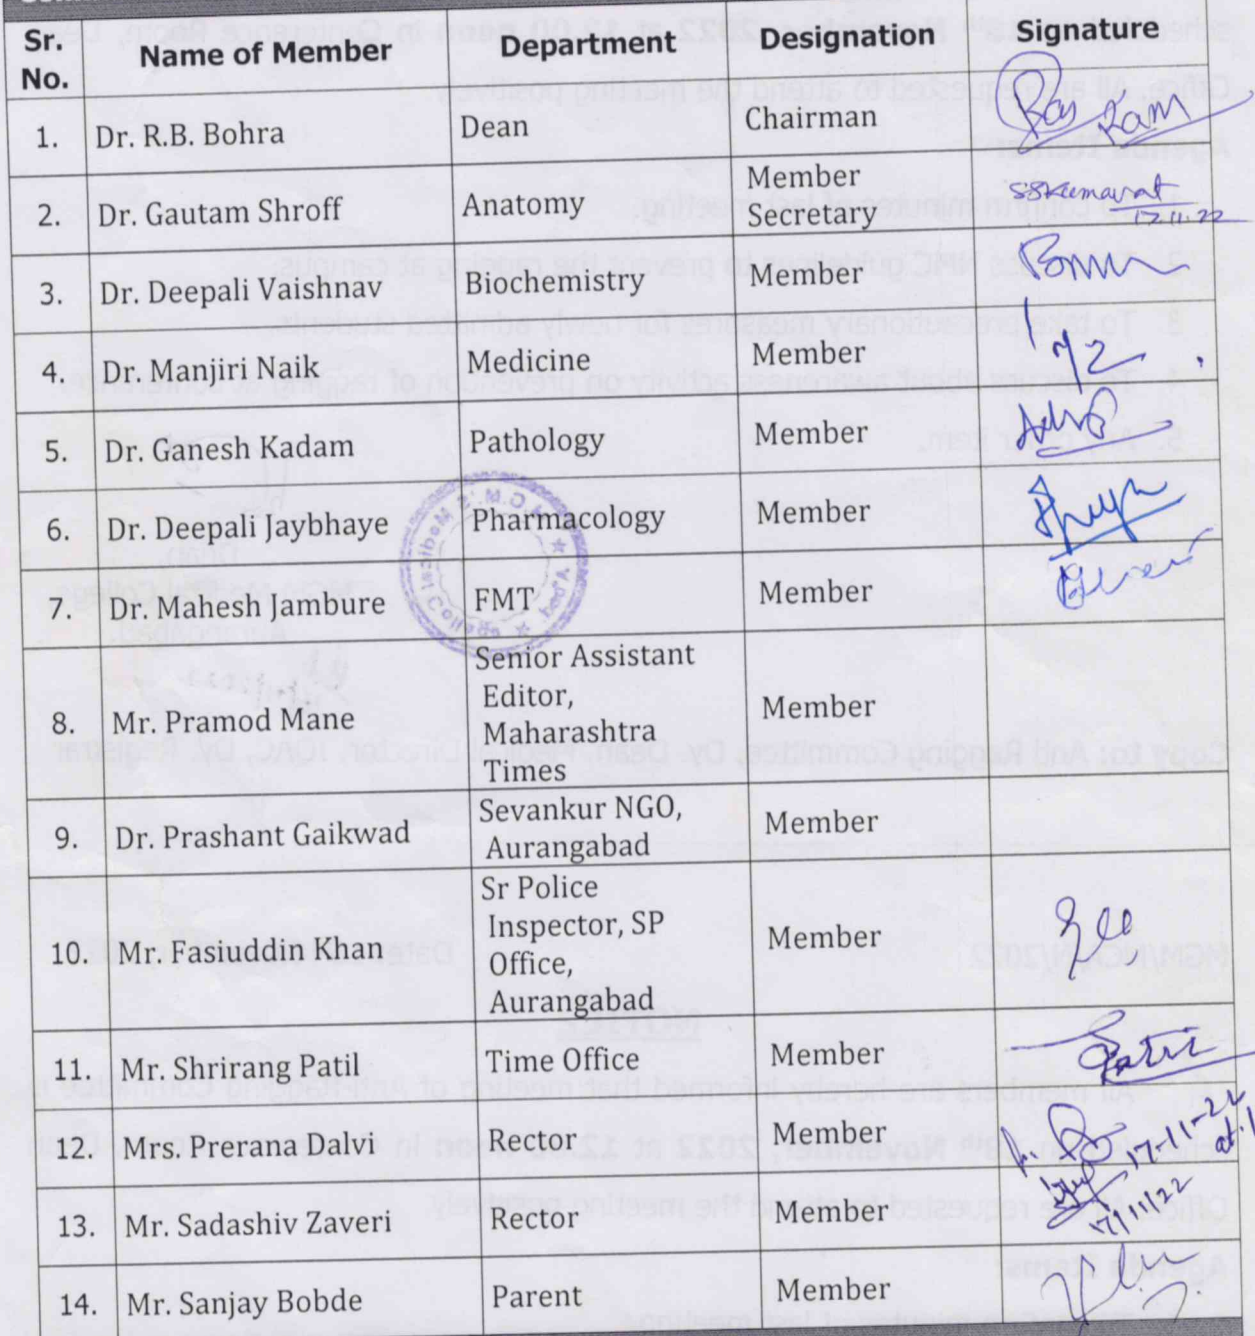 Sr. No. Name of Member Department Designation Signature
1. Dr. R.B. Bohra Dean Chairman
2. Dr. Gautam Shroff Anatomy Member Secretary sskumavat 17.11.22
3. Dr. Deepali Vaishnav Biochemistry Member
4. Dr. Manjiri Naik Medicine Member
5. Dr. Ganesh Kadam Pathology Member
6. Dr. Deepali Jaybhaye Pharmacology Member
7. Dr. Mahesh Jambure FMT Member
8. Mr. Pramod Mane Senior Assistant Editor, Maharashtra Times Member
9. Dr. Prashant Gaikwad Sevankur NGO, Aurangabad Member
10. Mr. Fasiuddin Khan Sr Police Inspector, SP Office, Aurangabad Member
11. Mr. Shrirang Patil Time Office Member Patil
12. Mrs. Prerana Dalvi Rector Member
13. Mr. Sadashiv Zaveri Rector Member 17/11/22
14. Mr. Sanjay Bobde Parent Member